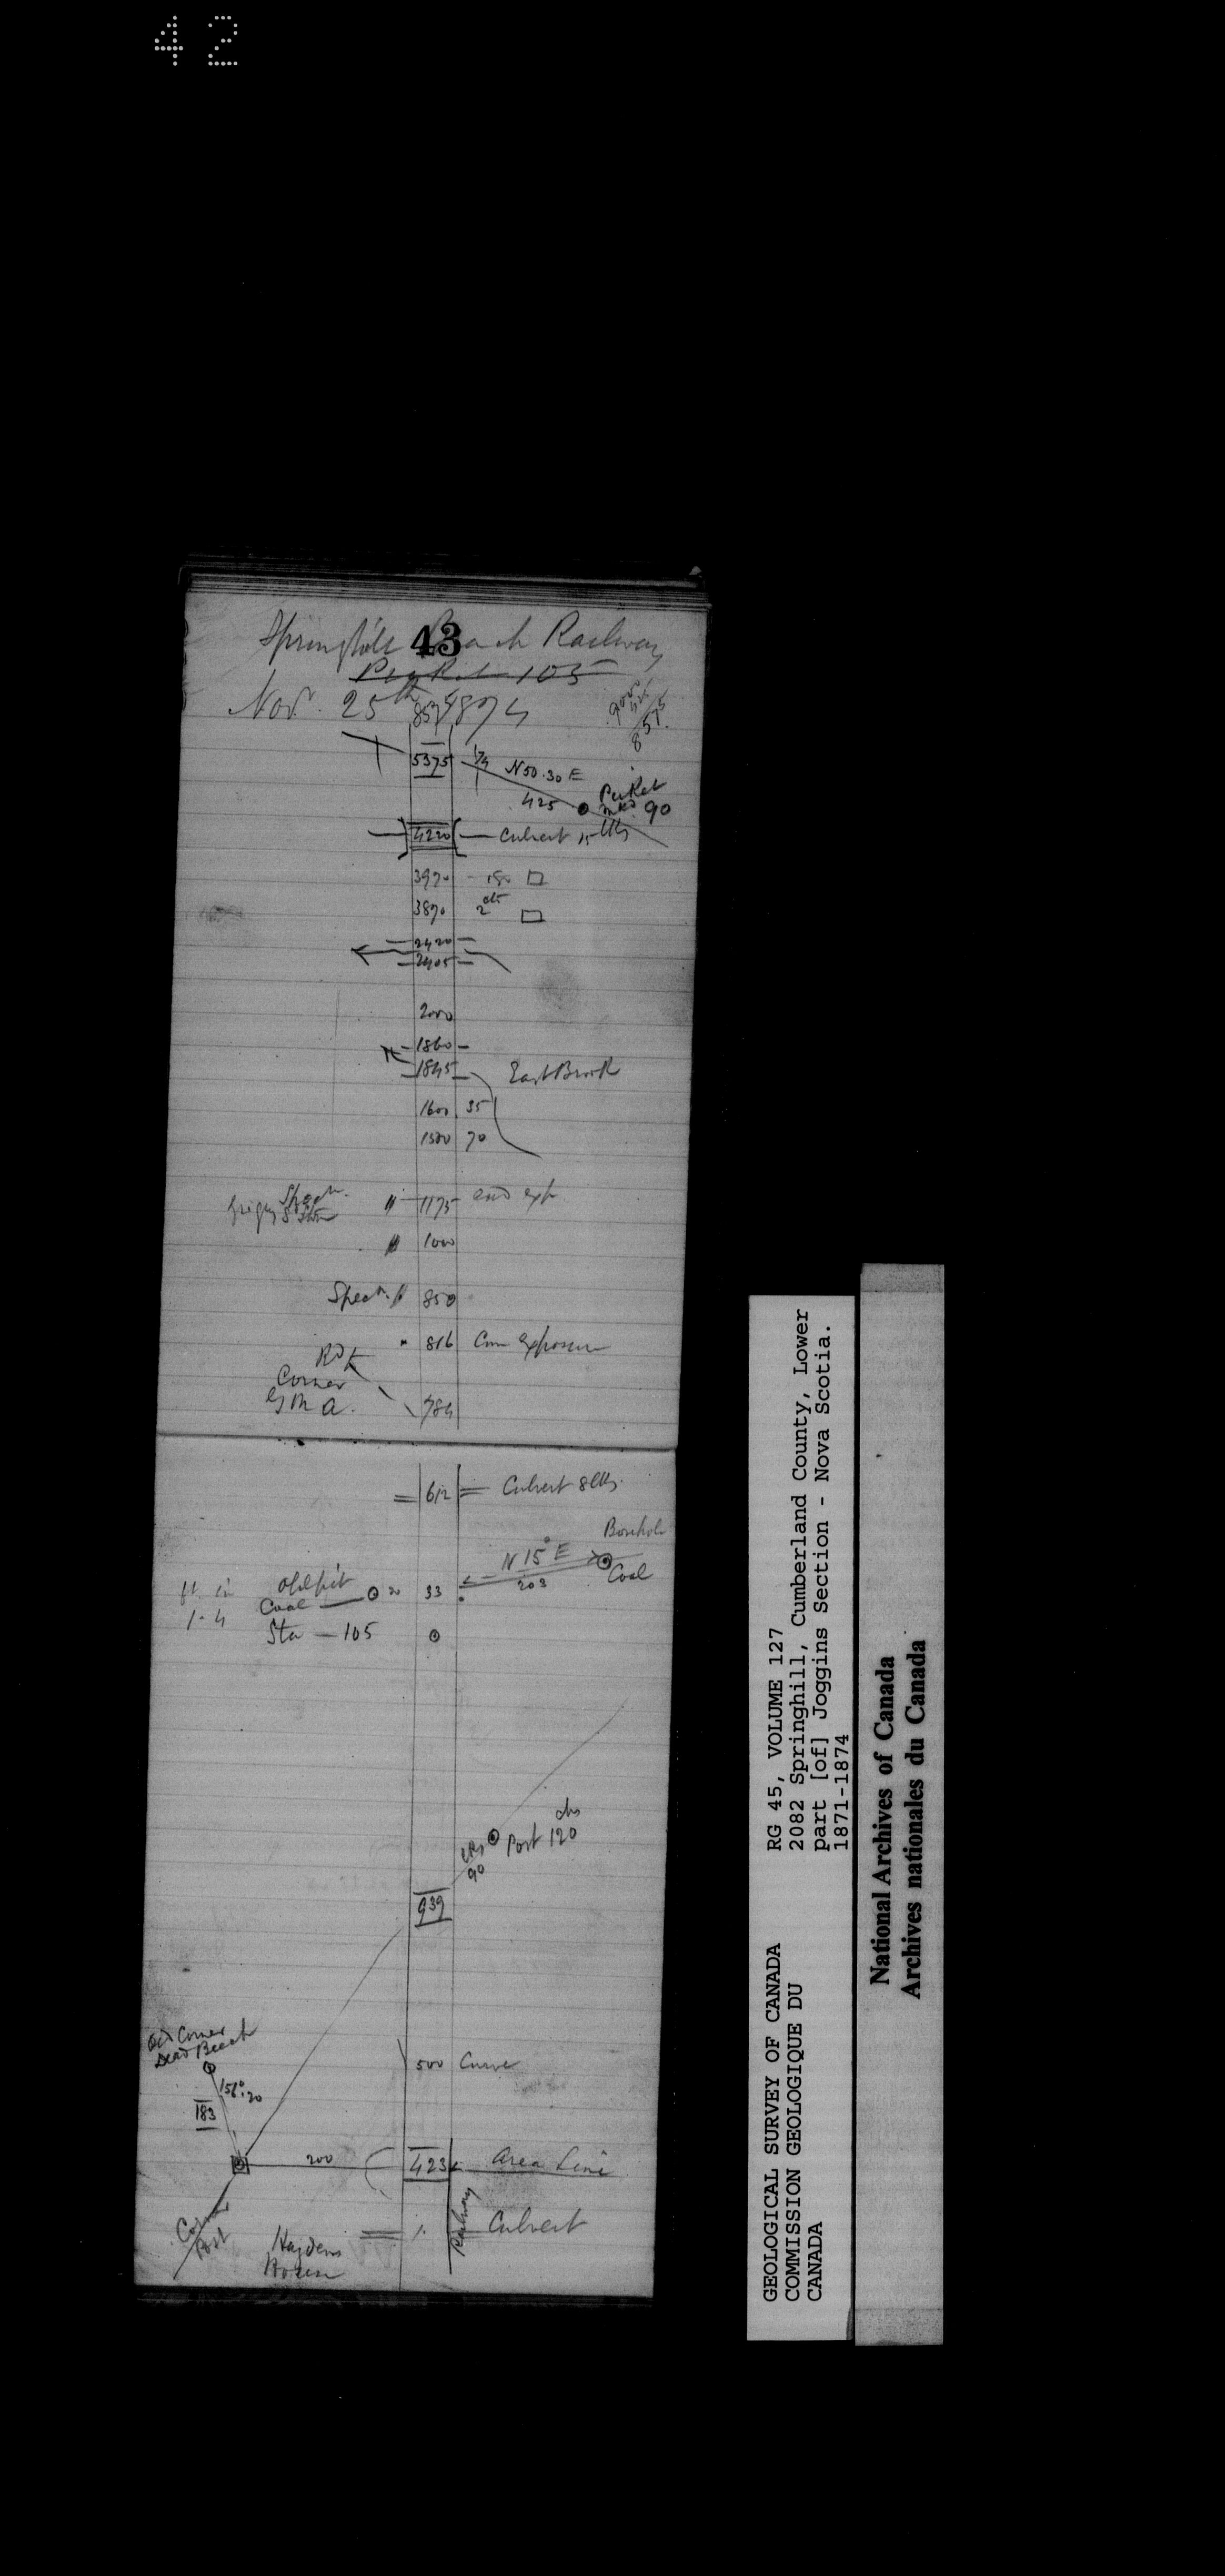 42
43
Springhill Branch Railway
Picket 105
Nov. 25th 1874
8575
5375 1/4 N 50.30 E
425 Picket
mkd 90
4220 Culvert 15 lks
3970 180
3870 2 chs
2420
2405
2000
1860
1845 East Brook
1600 35
1500 70
Spect.
1175 end exp
1000
Spect. 850
816 Com exposure
Rd
Corner
G M A. 784
612 Culvert 8 lks.
Borehole
N 15° E
203
Coal
ft in Old pit
1-4 Coal 20 33
Sta - 105
chs
Post 120
lks
90
939
Old Corner
Dead Beech
500 Curve
156°.20
183
200 423 Area Line
Railway
Corner
Post
Culvert
Haydens
House
RG 45, VOLUME 127
2082 Springhill, Cumberland County, Lower
part [of] Joggins Section - Nova Scotia.
1871-1874
GEOLOGICAL SURVEY OF CANADA
COMMISSION GEOLOGIQUE DU
CANADA
National Archives of Canada
Archives nationales du Canada